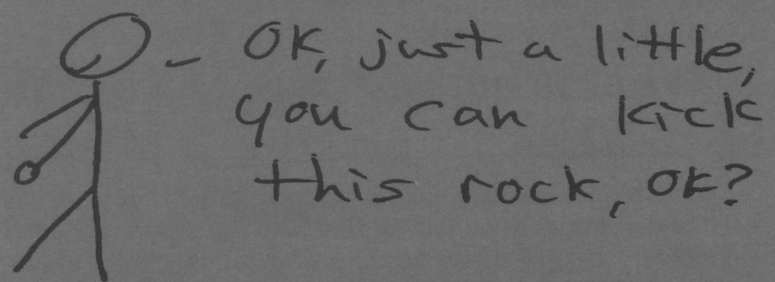 OK, just a little,
you can kick
this rock, OK?